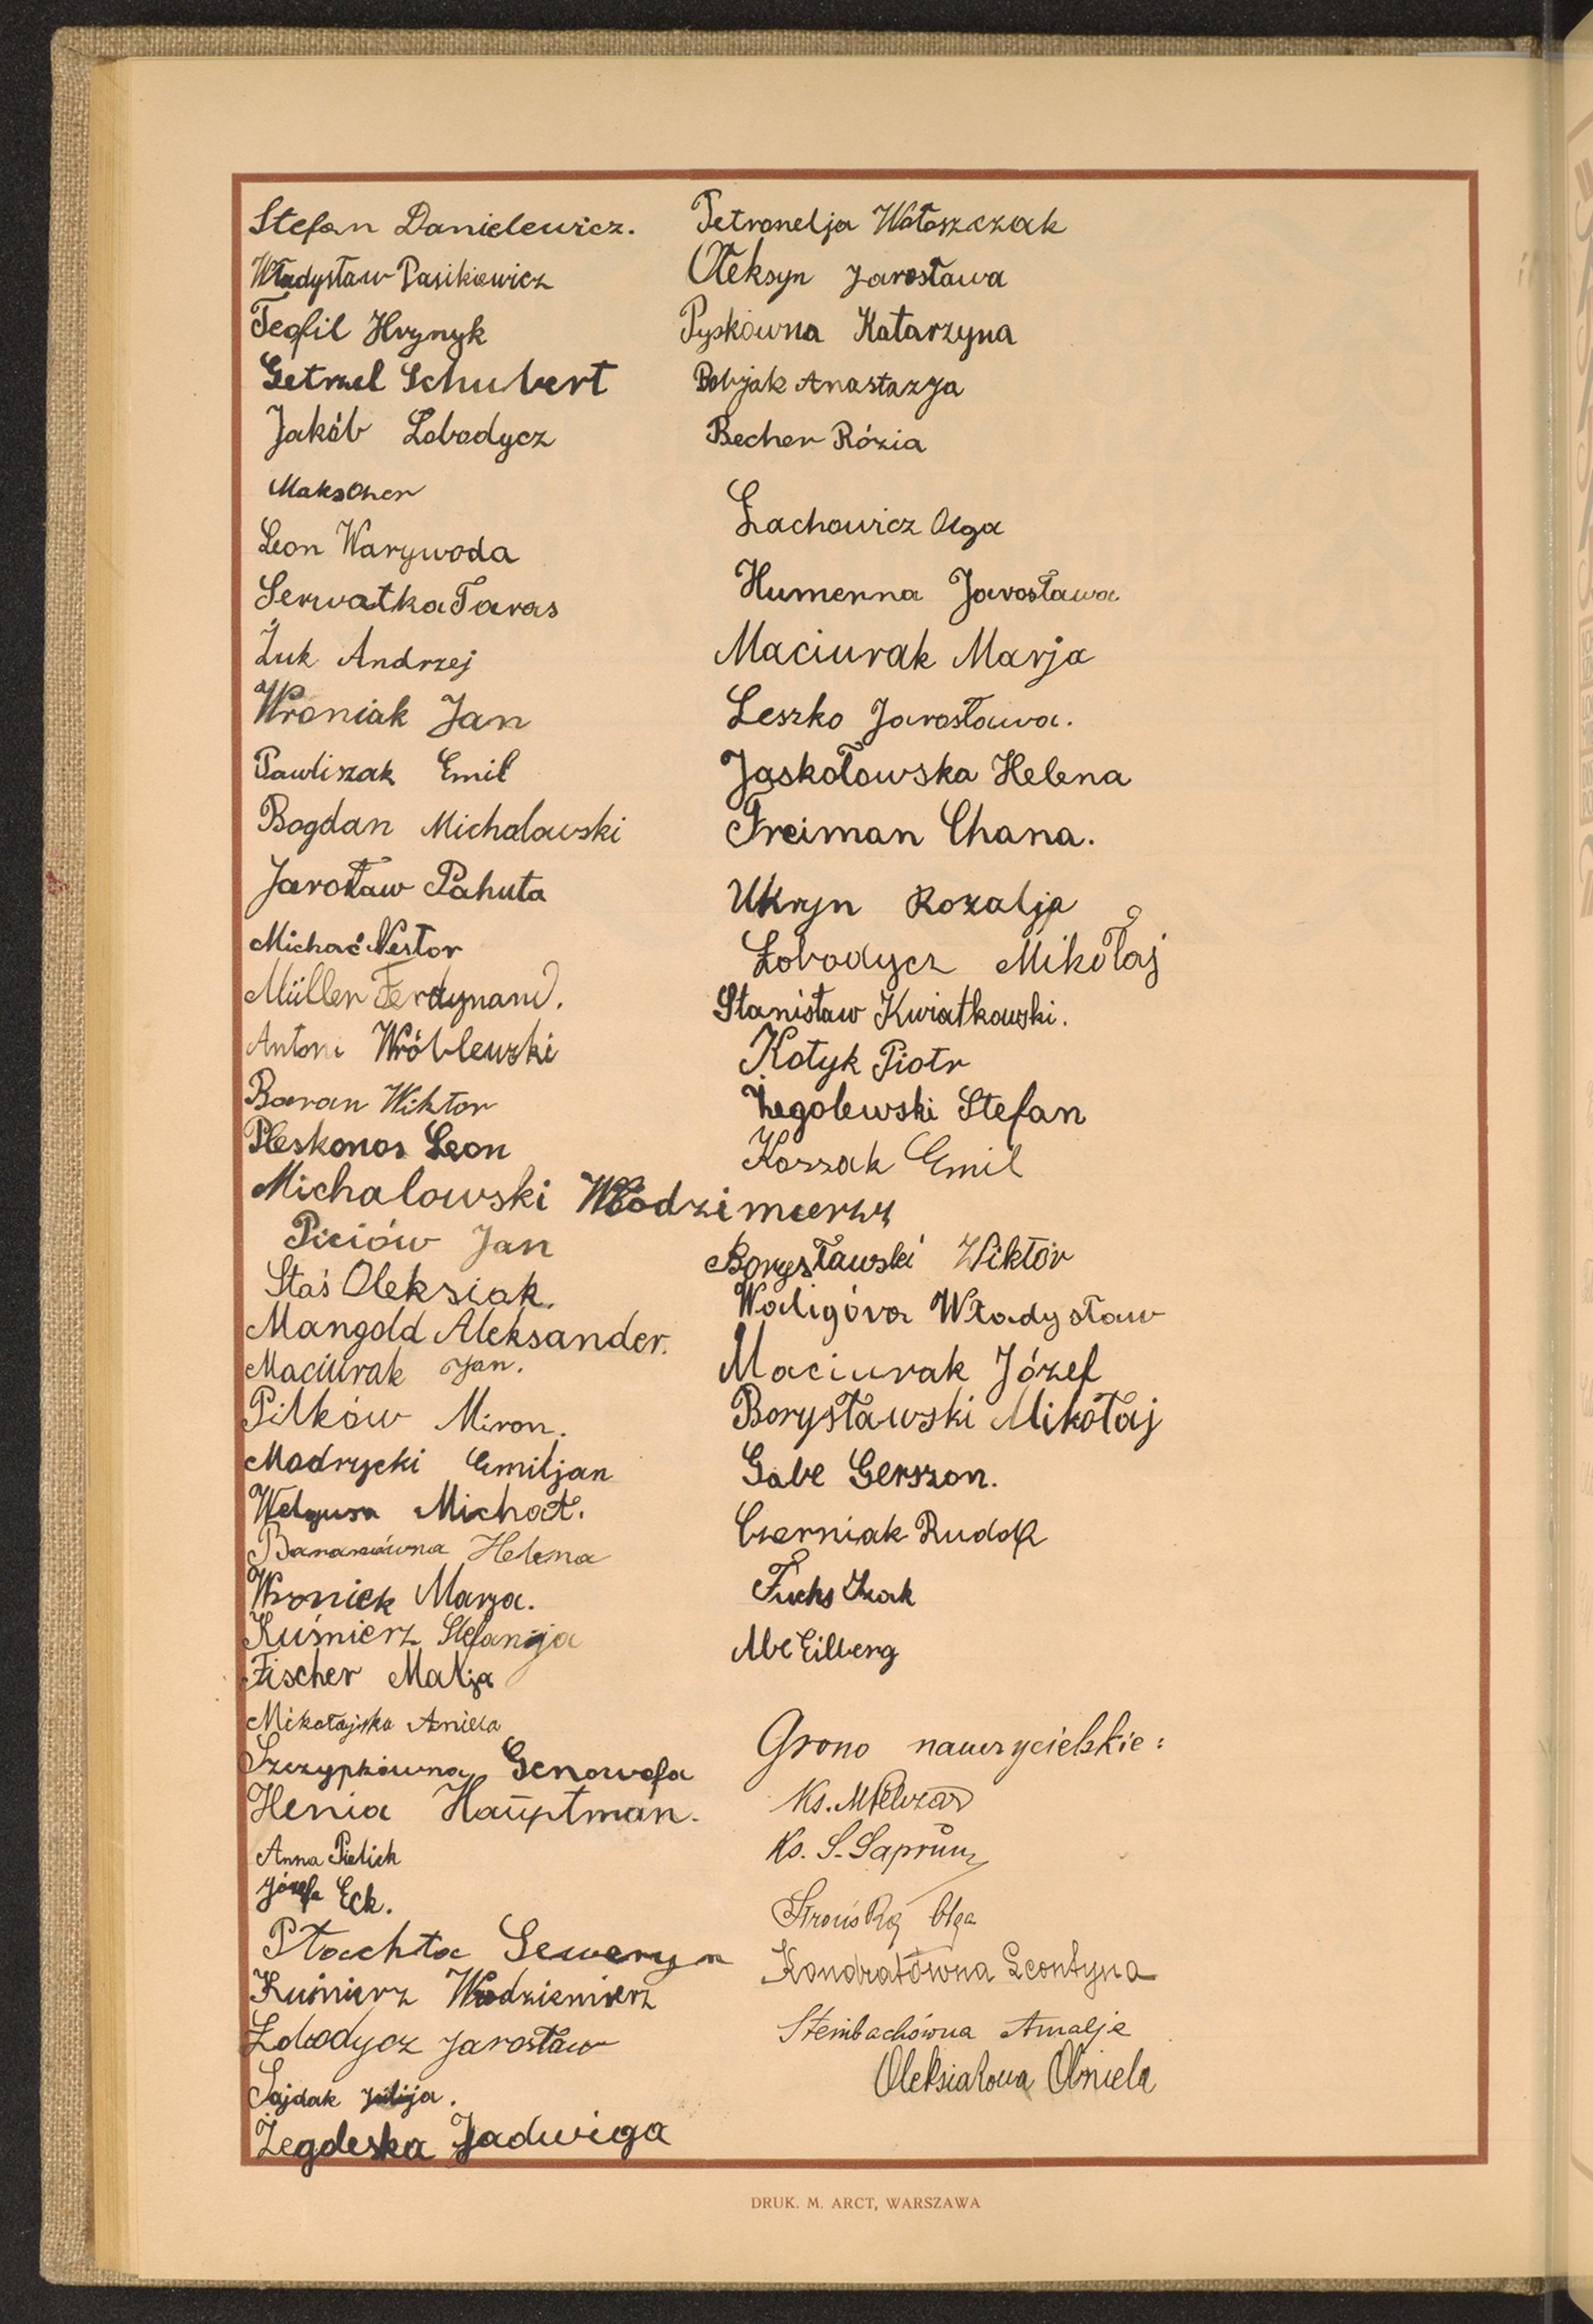 Stefan Danielewicz.
Władysław Pasikiewicz
Teofil Hrynyk
Getzel Schubert
Jakób Łobodycz
Maks Oher
Leon Warywoda
Serwatka Taras
Żuk Andrzej
Wroniak Jan
Pawliszak Emil
Bogdan Michalowski
Jarosław Pahuta
Michać Nestor
Müller Ferdynand.
Antoni Wróblewski
Baran Wiktor
Pleskonos Leon
Michalowski Włodzimierz
Piciów Jan
Staś Oleksiak.
Mangold Aleksander.
Maciurak Jan.
Pitków Miron.
Modrycki Emiljan
Michał.
Baranówna Helena
Wroniek Marja.
Kuśnierz Stefanija
Fischer Malja
Mikołajska Aniela
Szczypkówna Genowefa
Henia Hauptman.
Anna Pielich
Józefa Eck.
Płachta Seweryn
Kuśnierz Włodziemierz
Łobodycz Jarosław
Sajdak Julija.
Żegleska Jadwiga
Petronelja Wołoszczak
Ołeksyn Jarosława
Pyskówna Katarzyna
Bobjak Anastazja
Becher Rózia
Łachowicz Olga
Humenna Jarosława
Maciurak Marja
Leszko Jarosława.
Jaskołowska Helena
Freiman Chana.
Ukryn Rozalja
Łobodycz Mikołaj
Stanisław Kwiatkowski.
Kotyk Piotr
Żegolewski Stefan
Kossak Emil
Borysławski Wiktór
Waligóra Władysław
Maciurak Józef
Borysławski Mikołaj
Gabe Gerszon.
Czerniak Rudolf
Fuchs Izak
Abe Eilberg
Grono nauczycielskie:
Ks.
Ks. S. Saprun
Olga
Kondratówna Leontyna
Steinbachówna Amalje
Oleksiakowa Aniela
DRUK. M. ARCT, WARSZAWA